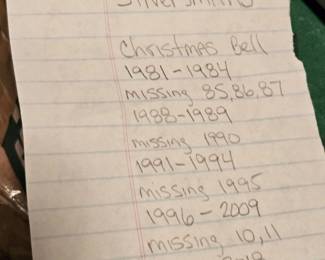 Christmas Bell
1981-1984
missing 85,86,87
1988-1989
missing 1990
1991-1994
missing 1995
1996-2009
missing 10,11